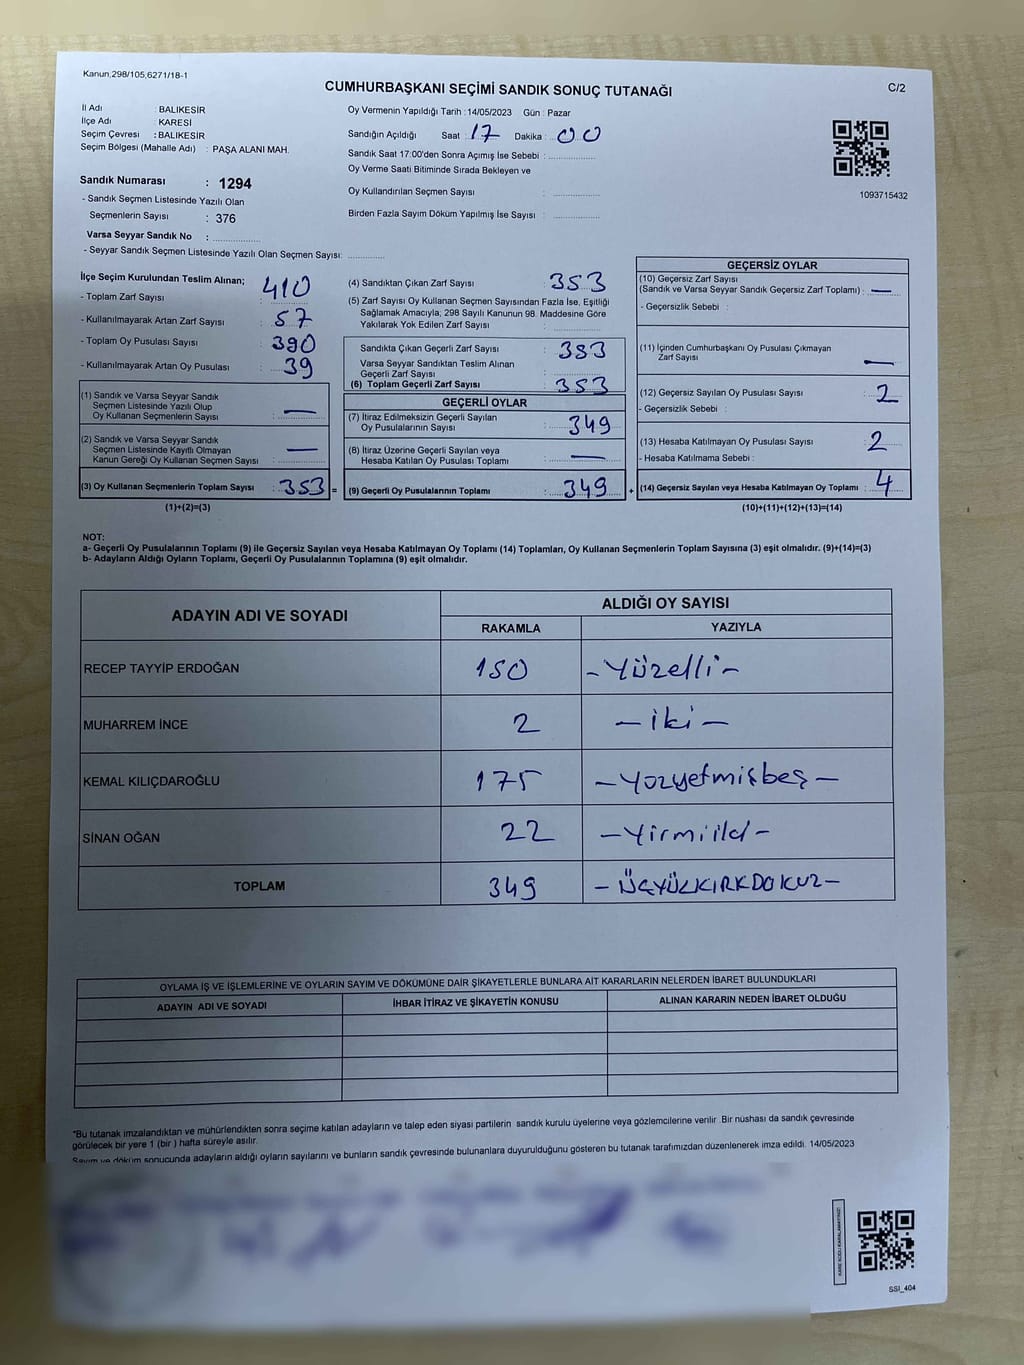 Kanun,298/105,6271/18-1
CUMHURBAŞKANI SEÇİMİ SANDIK SONUÇ TUTANAĞI
C/2
İl Adı : BALIKESİR
İlçe Adı : KARESİ
Seçim Çevresi : BALIKESİR
Seçim Bölgesi (Mahalle Adı) : PAŞA ALANI MAH.
Sandık Numarası : 1294
- Sandık Seçmen Listesinde Yazılı Olan
Seçmenlerin Sayısı : 376
Varsa Seyyar Sandık No :
- Seyyar Sandık Seçmen Listesinde Yazılı Olan Seçmen Sayısı:
Oy Vermenin Yapıldığı Tarih : 14/05/2023 Gün : Pazar
Sandığın Açıldığı Saat : 17 Dakika : 00
Sandık Saat 17:00'den Sonra Açımış İse Sebebi :
Oy Verme Saati Bitiminde Sırada Bekleyen ve
Oy Kullandırılan Seçmen Sayısı :
Birden Fazla Sayım Döküm Yapılmış İse Sayısı :
1093715432
İlçe Seçim Kurulundan Teslim Alınan;
- Toplam Zarf Sayısı : 410
- Kullanılmayarak Artan Zarf Sayısı : 57
- Toplam Oy Pusulası Sayısı : 390
- Kullanılmayarak Artan Oy Pusulası : 39
(1) Sandık ve Varsa Seyyar Sandık
Seçmen Listesinde Yazılı Olup
Oy Kullanan Seçmenlerin Sayısı : —
(2) Sandık ve Varsa Seyyar Sandık
Seçmen Listesinde Kayıtlı Olmayan
Kanun Gereği Oy Kullanan Seçmen Sayısı : —
(3) Oy Kullanan Seçmenlerin Toplam Sayısı : 353 =
(1)+(2)=(3)
(4) Sandıktan Çıkan Zarf Sayısı : 353
(5) Zarf Sayısı Oy Kullanan Seçmen Sayısından Fazla İse, Eşitliği
Sağlamak Amacıyla; 298 Sayılı Kanunun 98. Maddesine Göre
Yakılarak Yok Edilen Zarf Sayısı :
Sandıkta Çıkan Geçerli Zarf Sayısı : 353
Varsa Seyyar Sandıktan Teslim Alınan
Geçerli Zarf Sayısı :
(6) Toplam Geçerli Zarf Sayısı : 353
GEÇERLİ OYLAR
(7) İtiraz Edilmeksizin Geçerli Sayılan
Oy Pusulalarının Sayısı : 349
(8) İtiraz Üzerine Geçerli Sayılan veya
Hesaba Katılan Oy Pusulası Toplamı : —
(9) Geçerli Oy Pusulalarının Toplamı : 349 +
GEÇERSİZ OYLAR
(10) Geçersiz Zarf Sayısı
(Sandık ve Varsa Seyyar Sandık Geçersiz Zarf Toplamı) : —
- Geçersizlik Sebebi :
(11) İçinden Cumhurbaşkanı Oy Pusulası Çıkmayan
Zarf Sayısı : —
(12) Geçersiz Sayılan Oy Pusulası Sayısı : 2
- Geçersizlik Sebebi :
(13) Hesaba Katılmayan Oy Pusulası Sayısı : 2
- Hesaba Katılmama Sebebi :
(14) Geçersiz Sayılan veya Hesaba Katılmayan Oy Toplamı : 4
(10)+(11)+(12)+(13)=(14)
NOT:
a- Geçerli Oy Pusulalarının Toplamı (9) ile Geçersiz Sayılan veya Hesaba Katılmayan Oy Toplamı (14) Toplamları, Oy Kullanan Seçmenlerin Toplam Sayısına (3) eşit olmalıdır. (9)+(14)=(3)
b- Adayların Aldığı Oyların Toplamı, Geçerli Oy Pusulalarının Toplamına (9) eşit olmalıdır.
ADAYIN ADI VE SOYADI
ALDIĞI OY SAYISI
RAKAMLA YAZIYLA
RECEP TAYYİP ERDOĞAN 150 - Yüzelli -
MUHARREM İNCE 2 - iki -
KEMAL KILIÇDAROĞLU 175 - Yüzyetmişbeş -
SİNAN OĞAN 22 - Yirmiiki -
TOPLAM 349 - ÜÇYÜZKIRKDOKUZ -
OYLAMA İŞ VE İŞLEMLERİNE VE OYLARIN SAYIM VE DÖKÜMÜNE DAİR ŞİKAYETLERLE BUNLARA AİT KARARLARIN NELERDEN İBARET BULUNDUKLARI
ADAYIN ADI VE SOYADI İHBAR İTİRAZ VE ŞİKAYETİN KONUSU ALINAN KARARIN NEDEN İBARET OLDUĞU
*Bu tutanak imzalandıktan ve mühürlendikten sonra seçime katılan adayların ve talep eden siyasi partilerin sandık kurulu üyelerine veya gözlemcilerine verilir .Bir nüshası da sandık çevresinde
görülecek bir yere 1 (bir ) hafta süreyle asılır.
Sayım ve döküm sonucunda adayların aldığı oyların sayılarını ve bunların sandık çevresinde bulunanlara duyurulduğunu gösteren bu tutanak tarafımızdan düzenlenerek imza edildi. 14/05/2023
SSI_404